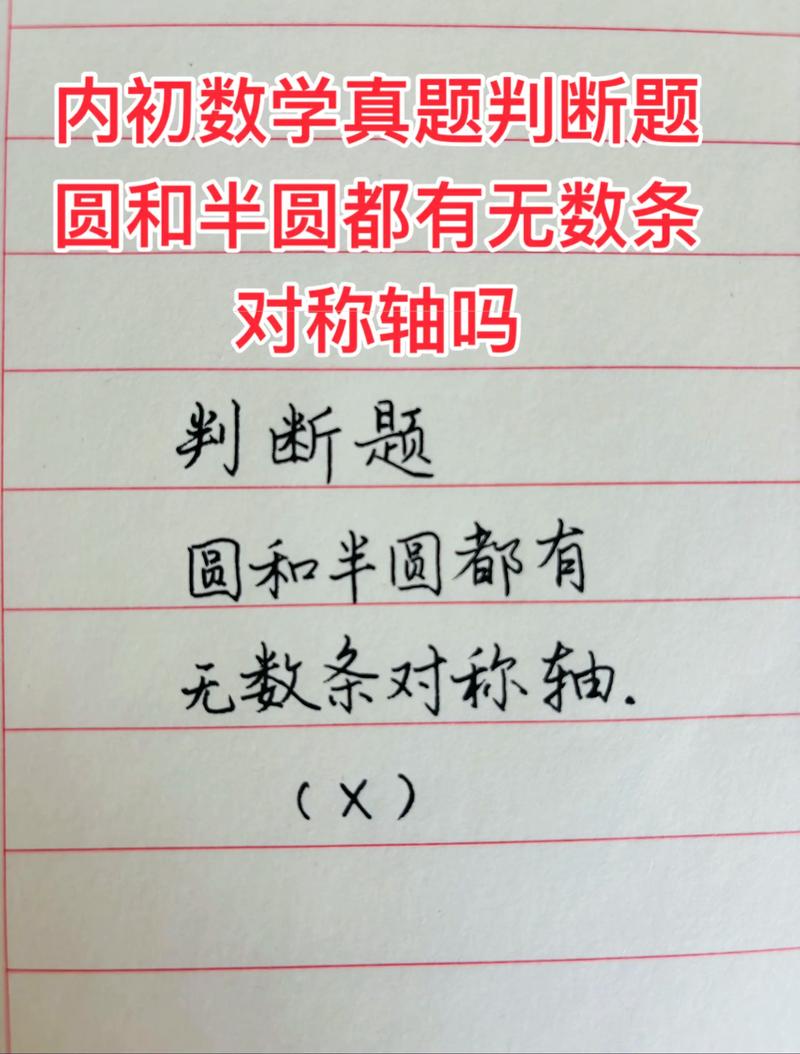 内初数学真题判断题
圆和半圆都有无数条
对称轴吗
判断题
圆和半圆都有
无数条对称轴.
(X)